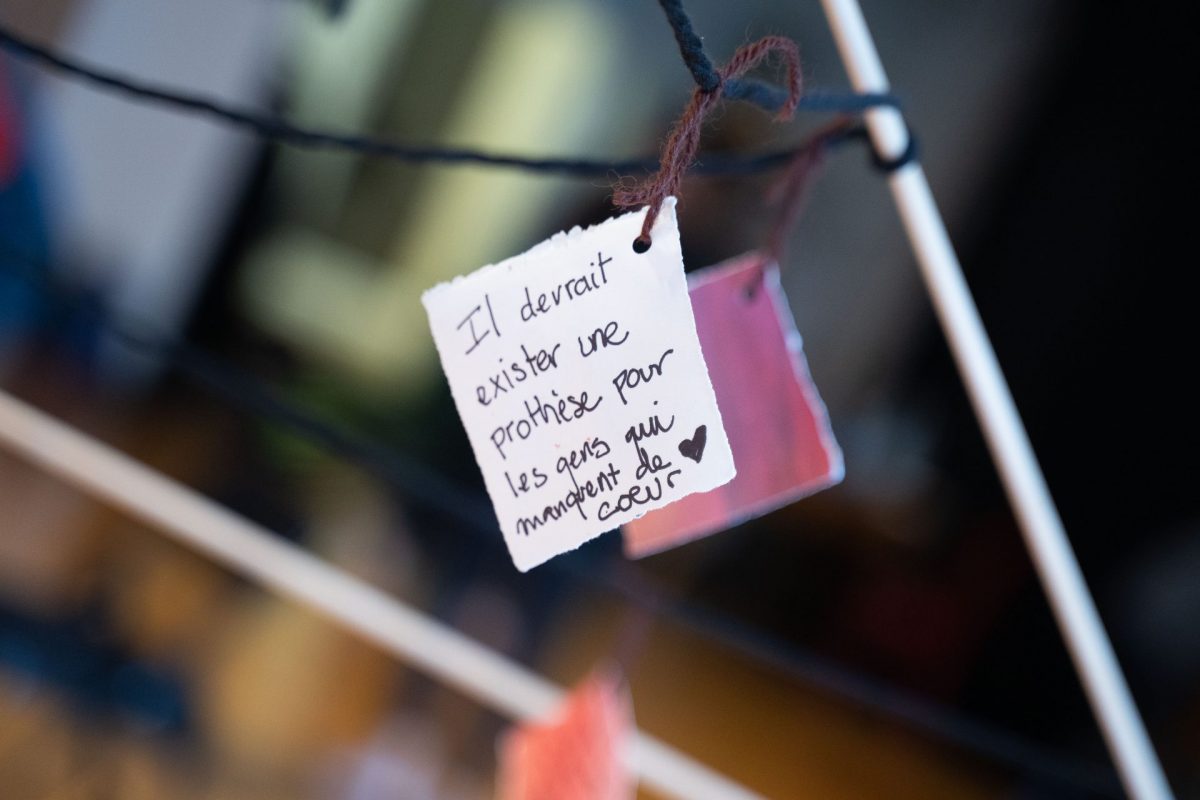 Il devrait
exister une
prothèse pour
les gens qui
manquent de
coeur